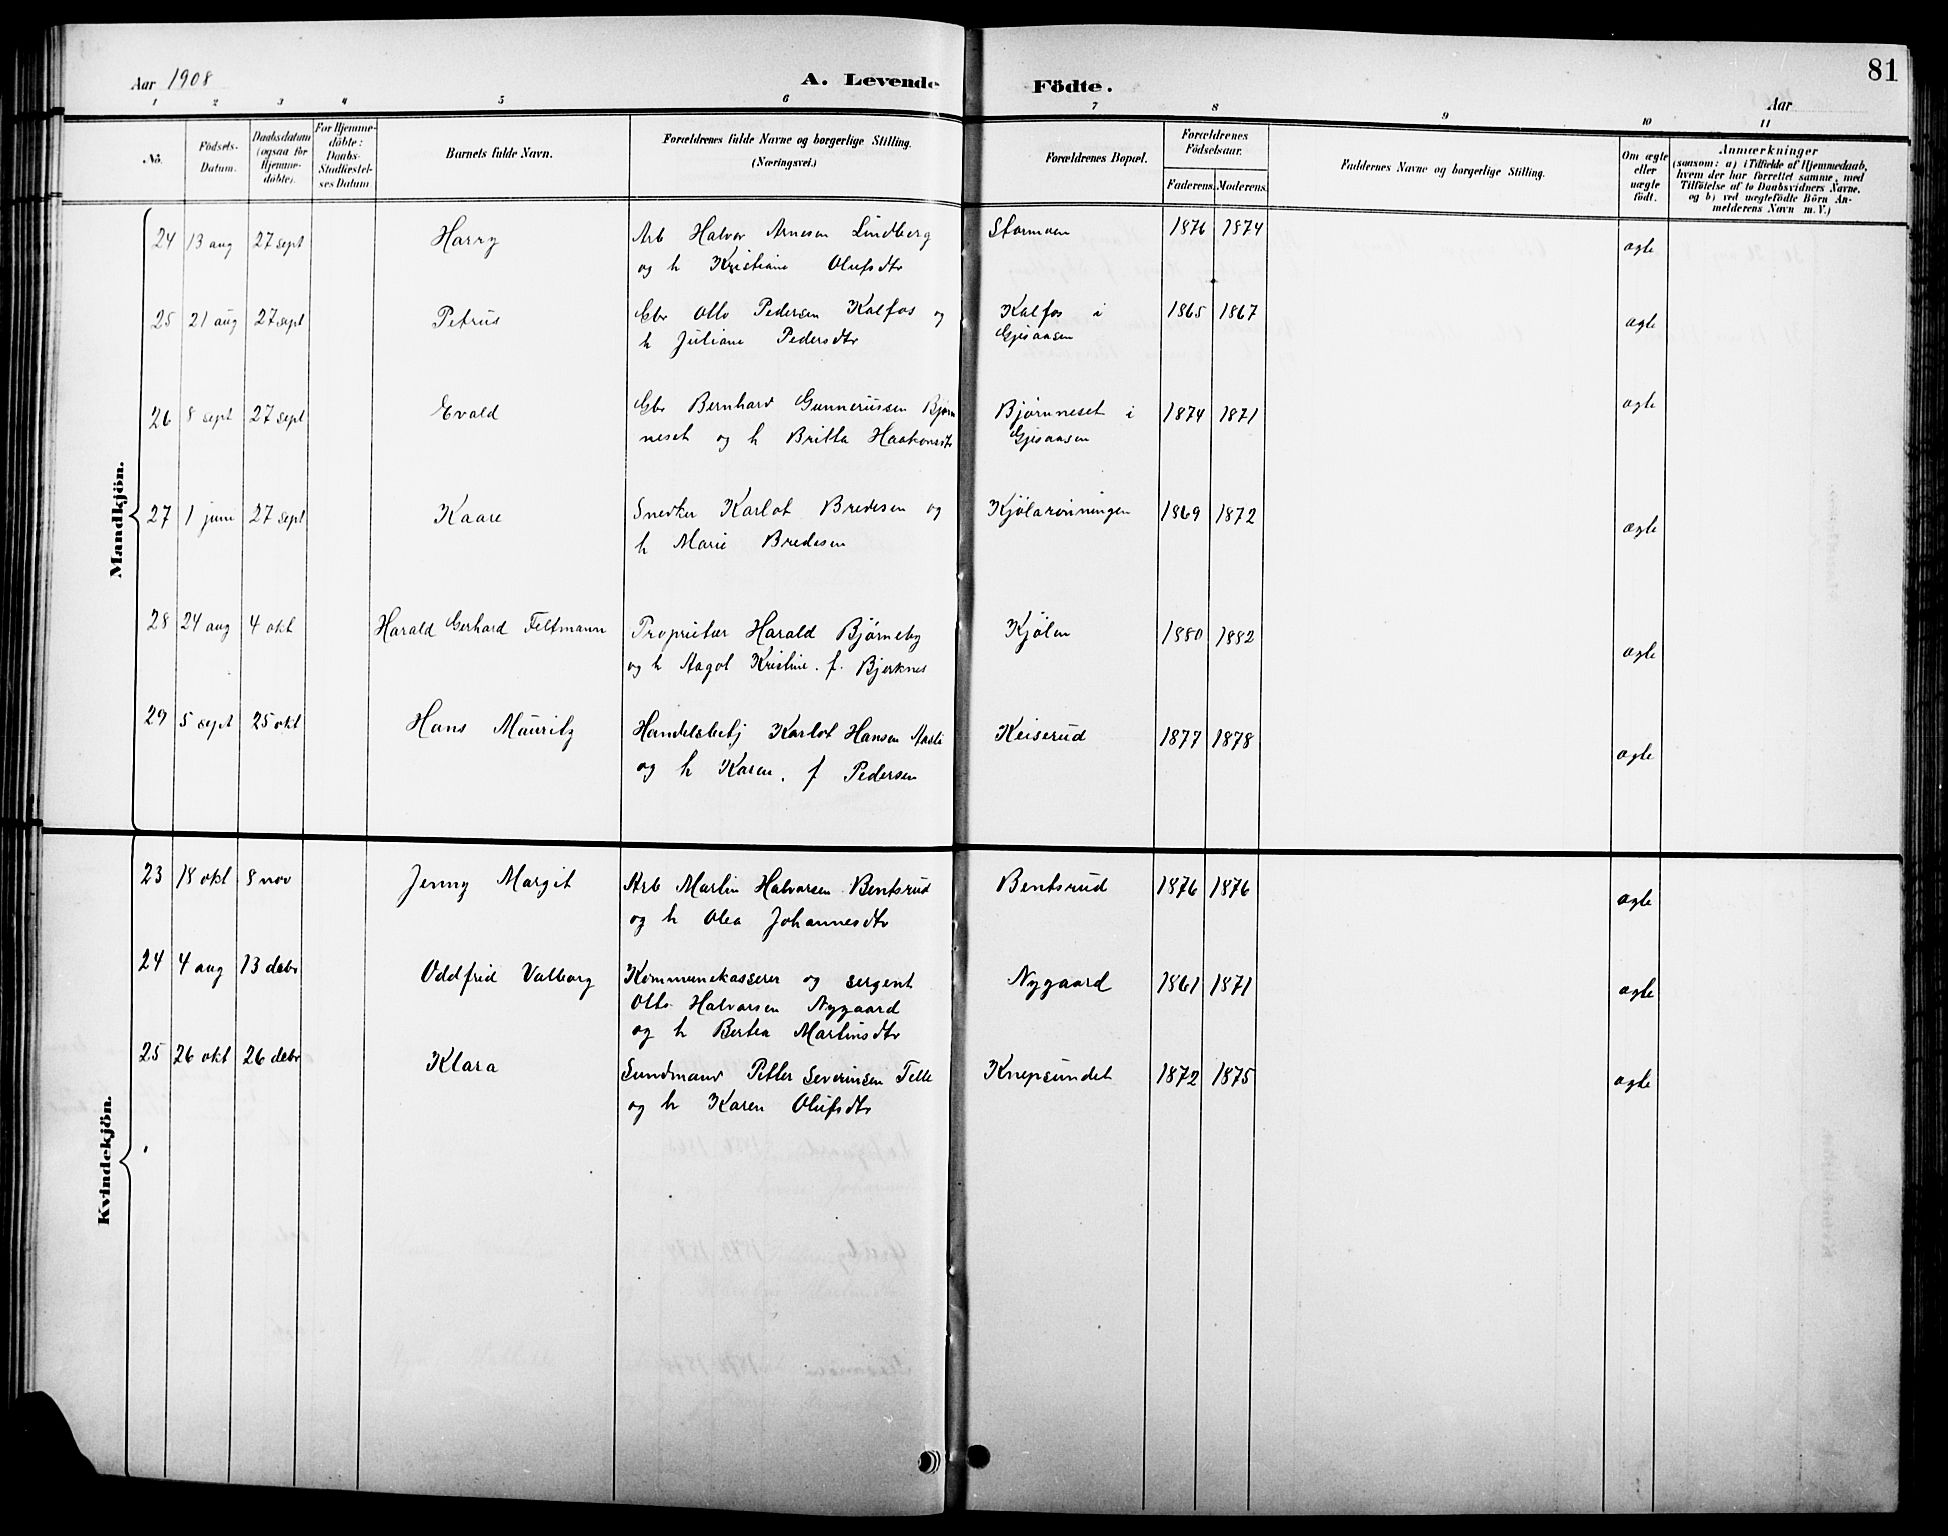 Aar 1908
A. Levende Födte.
81
Aar
1 2 3 4 5 6 7 8 9 10 11
No.
Födsels-Datum.
Daabsdatum (ogsaa for Hjemme-döbte).
For Hjemme-döbte: Daabs-Stadfæstel-ses Datum
Barnets fulde Navn.
Forældrenes fulde Navne og borgerlige Stilling. (Næringsvei.)
Forældrenes Bopæl.
Forældrenes Födselsaar.
Faderens. Moderens.
Faddernes Navne og borgerlige Stilling.
Om ægte eller uægte födt.
Anmærkninger
(saasom: a) i Tilfælde af Hjemmedaab,
hvem der har forrettet samme, med
Tilföielse af to Daabsvidners Navne,
og b) ved uægtefödte Börn An-
melderens Navn m. V.)
Mandkjön.
24 13 aug 27 sept Harry Arb Halvor Arnesen Lindberg Stormoen 1876 1874 ægte
og h Kristiane Olufsdtr
25 21 aug 27 sept Petrus Gbr Otto Pedersen Kalfos og Kalfos i 1865 1867 ægte
h Juliane Pedersdtr Gjesaasen
26 8 sept 27 sept Evald Gbr Bernhard Gunnerussen Bjørn Bjørnneset i 1874 1871 ægte
neset og h Britta Haakonsdtr Gjesaasen
27 1 juni 27 sept Kaare Snedker Karlot Bredesen og Kjølarønningen 1869 1872 ægte
h Marie Bredesen
28 24 aug 4 okt Harald Gerhard Feltmann Proprietær Harald Bjørneby Kjølen 1880 1882 ægte
og h Aagot Kristine. f. Bjerknes
29 5 sept 25 okt Hans Mauritz Handelsbetj Karlot Hansen Keiserud 1877 1878 ægte
og h Karen. f Pedersen
Kvindekjön.
23 18 okt 8 nov Jenny Margit Arb Martin Halvorsen Bentsrud Bentsrud 1876 1876 ægte
og h Olea Johannesdtr
24 4 aug 13 debr Oddfrid Valborg Kommunekasserer og sergent Nygaard 1861 1871 ægte
Otto Halvorsen Nygaard
og h Bertea Martinsdtr
25 26 okt 26 debr Klara Sundmand Petter Severinsen Telle Knepsundet 1872 1875 ægte
og h Karen Olufsdtr